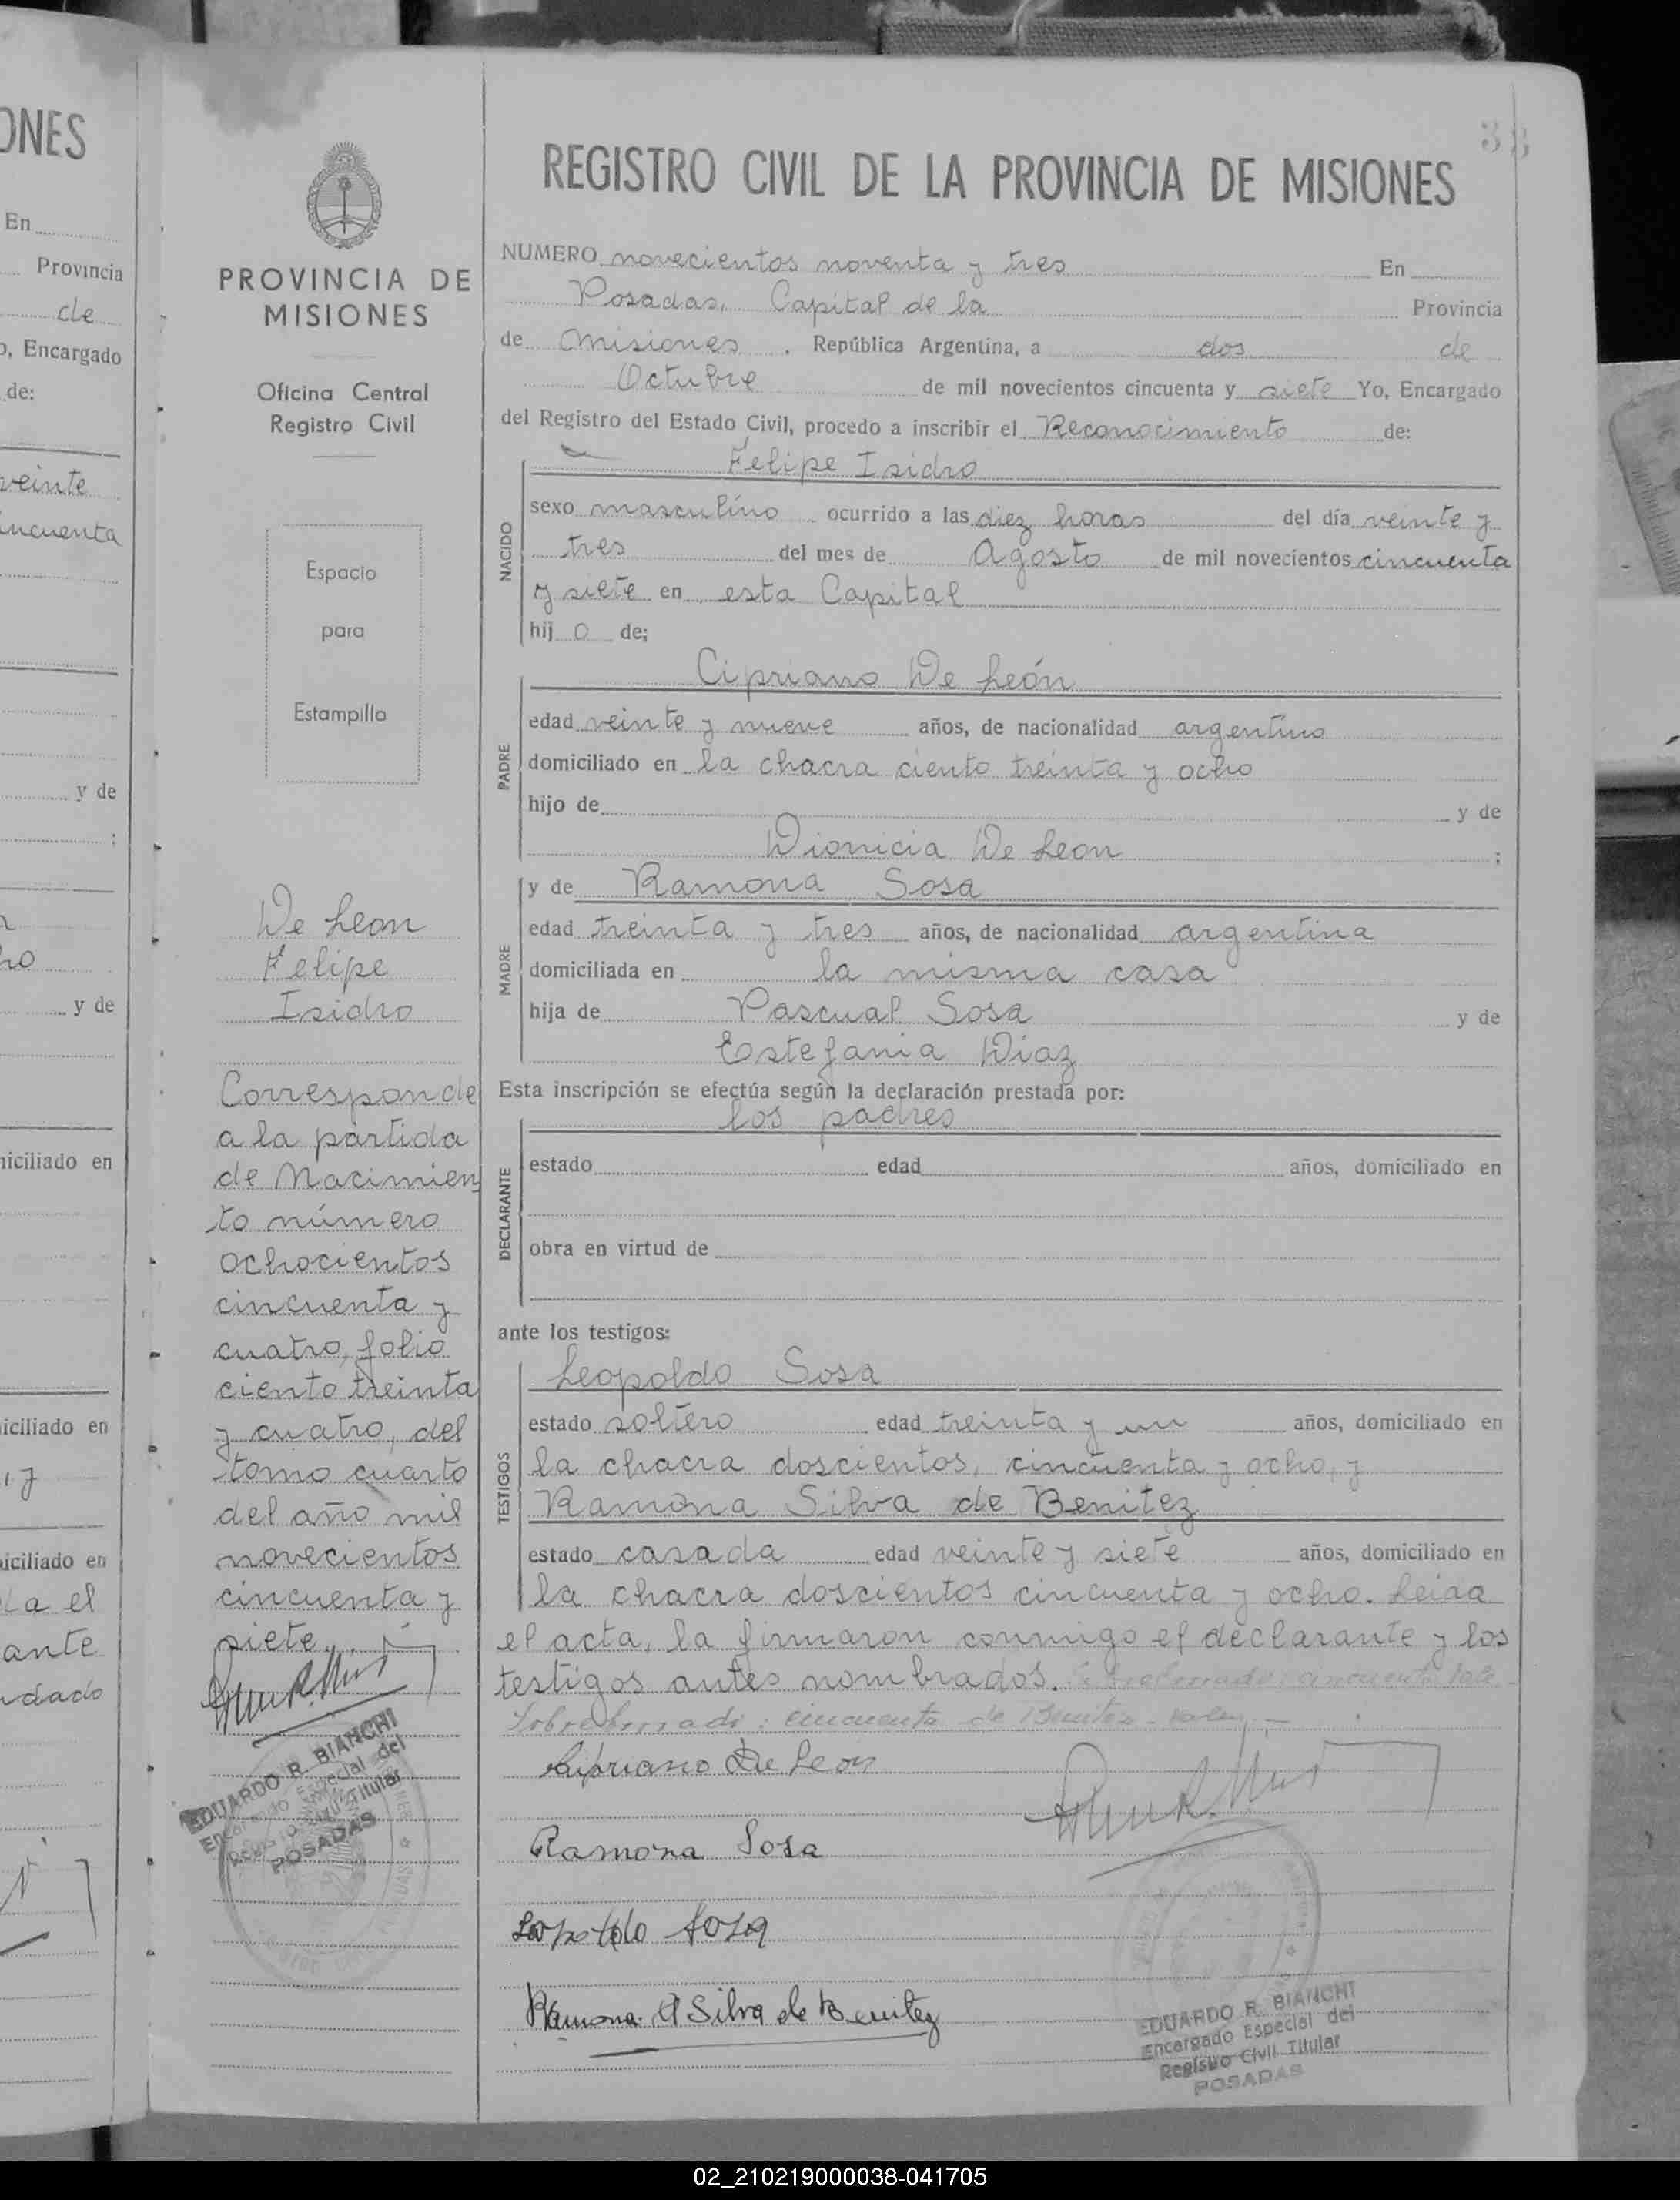 ONES
En
Provincia
de
o, Encargado
de:
veinte
incuenta
y de
;
ho
y de
iciliado en
iciliado en
iciliado en
ante
33
PROVINCIA DE
MISIONES
Oficina Central
Registro Civil
Espacio
para
Estampilla
De Leon
Felipe
Isidro
Corresponde
a la partida
de Nacimien
to número
ochocientos
cincuenta y
cuatro, folio
ciento treinta
y cuatro, del
tomo cuarto
del año mil
novecientos
cincuenta y
siete.
EDUARDO R. BIANCHI
Encargado Especial del
Registro Civil Titular
POSADAS
REGISTRO CIVIL DE LA PROVINCIA DE MISIONES
NUMERO novecientos noventa y tres En
Posadas, Capital de la Provincia
de Misiones . República Argentina, a dos de
Octubre de mil novecientos cincuenta y siete Yo, Encargado
del Registro del Estado Civil, procedo a inscribir el Reconocimiento de:
Felipe Isidro
NACIDO
sexo masculino ocurrido a las diez horas del día veinte y
tres del mes de Agosto de mil novecientos cincuenta
y siete en esta Capital
hij o de;
Cipriano De León
PADRE
edad veinte y nueve años, de nacionalidad argentino
domiciliado en la chacra ciento treinta y ocho
hijo de y de
Dionicia De Leon ;
y de Ramona Sosa
MADRE
edad treinta y tres años, de nacionalidad argentina
domiciliada en la misma casa
hija de Pascual Sosa y de
Estefania Diaz
Esta inscripción se efectúa según la declaración prestada por:
los padres
DECLARANTE
estado edad años, domiciliado en
obra en virtud de
ante los testigos:
Leopoldo Sosa
TESTIGOS
estado soltero edad treinta y un años, domiciliado en
la chacra doscientos, cincuenta y ocho, y
Ramona Silva de Benitez
estado casada edad veinte y siete años, domiciliado en
la chacra doscientos cincuenta y ocho. Leida
el acta, la firmaron conmigo el declarante y los
testigos antes nombrados.
Sobreborrado: cincuenta de Benitez - vale,
Cipriano De Leon
Ramona Sosa
Leopoldo Sosa
Ramona A Silva de Benitez
EDUARDO R. BIANCHI
Encargado Especial del
Registro Civil Titular
POSADAS
02_210219000038-041705